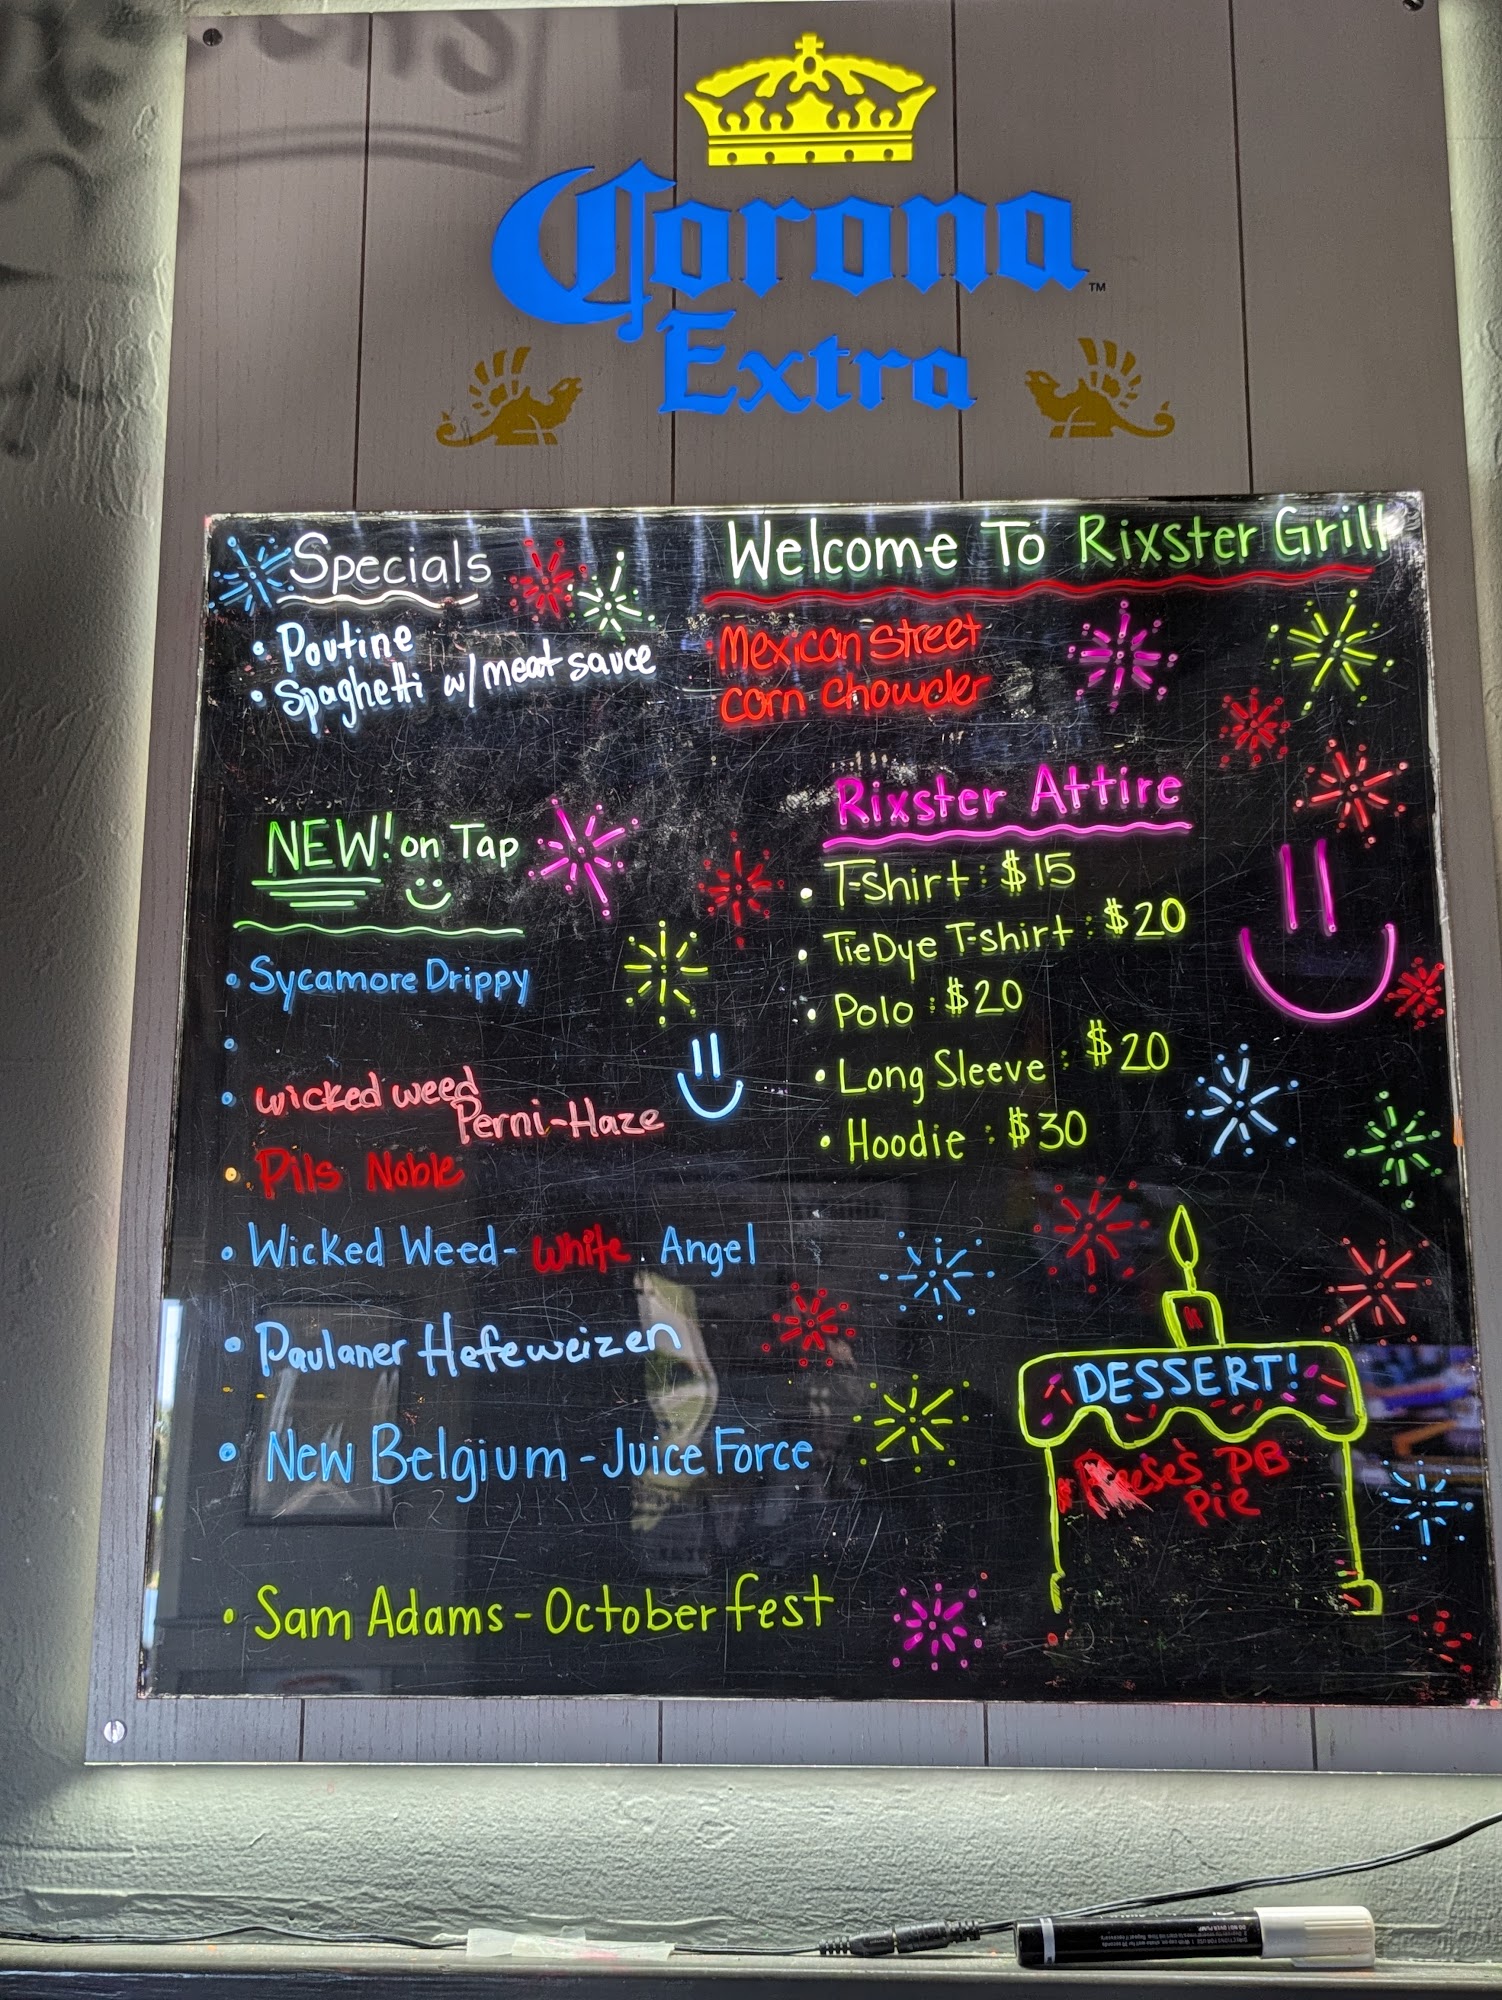 Corona
Extra
™
Specials
• Poutine
• Spaghetti w/meat sauce
Welcome To Rixster Grill
Mexican Street
Corn Chowder
NEW! on Tap
• Sycamore Drippy
•
• Wicked weed
Perni-Haze
• Pils Noble
• Wicked Weed- White Angel
• Paulaner Hefeweizen
• New Belgium - Juice Force
• Sam Adams - Octoberfest
Rixster Attire
• T-shirt: $15
• TieDye T-shirt: $20
• Polo: $20
• Long Sleeve: $20
• Hoodie: $30
DESSERT!
Reese's PB
Pie